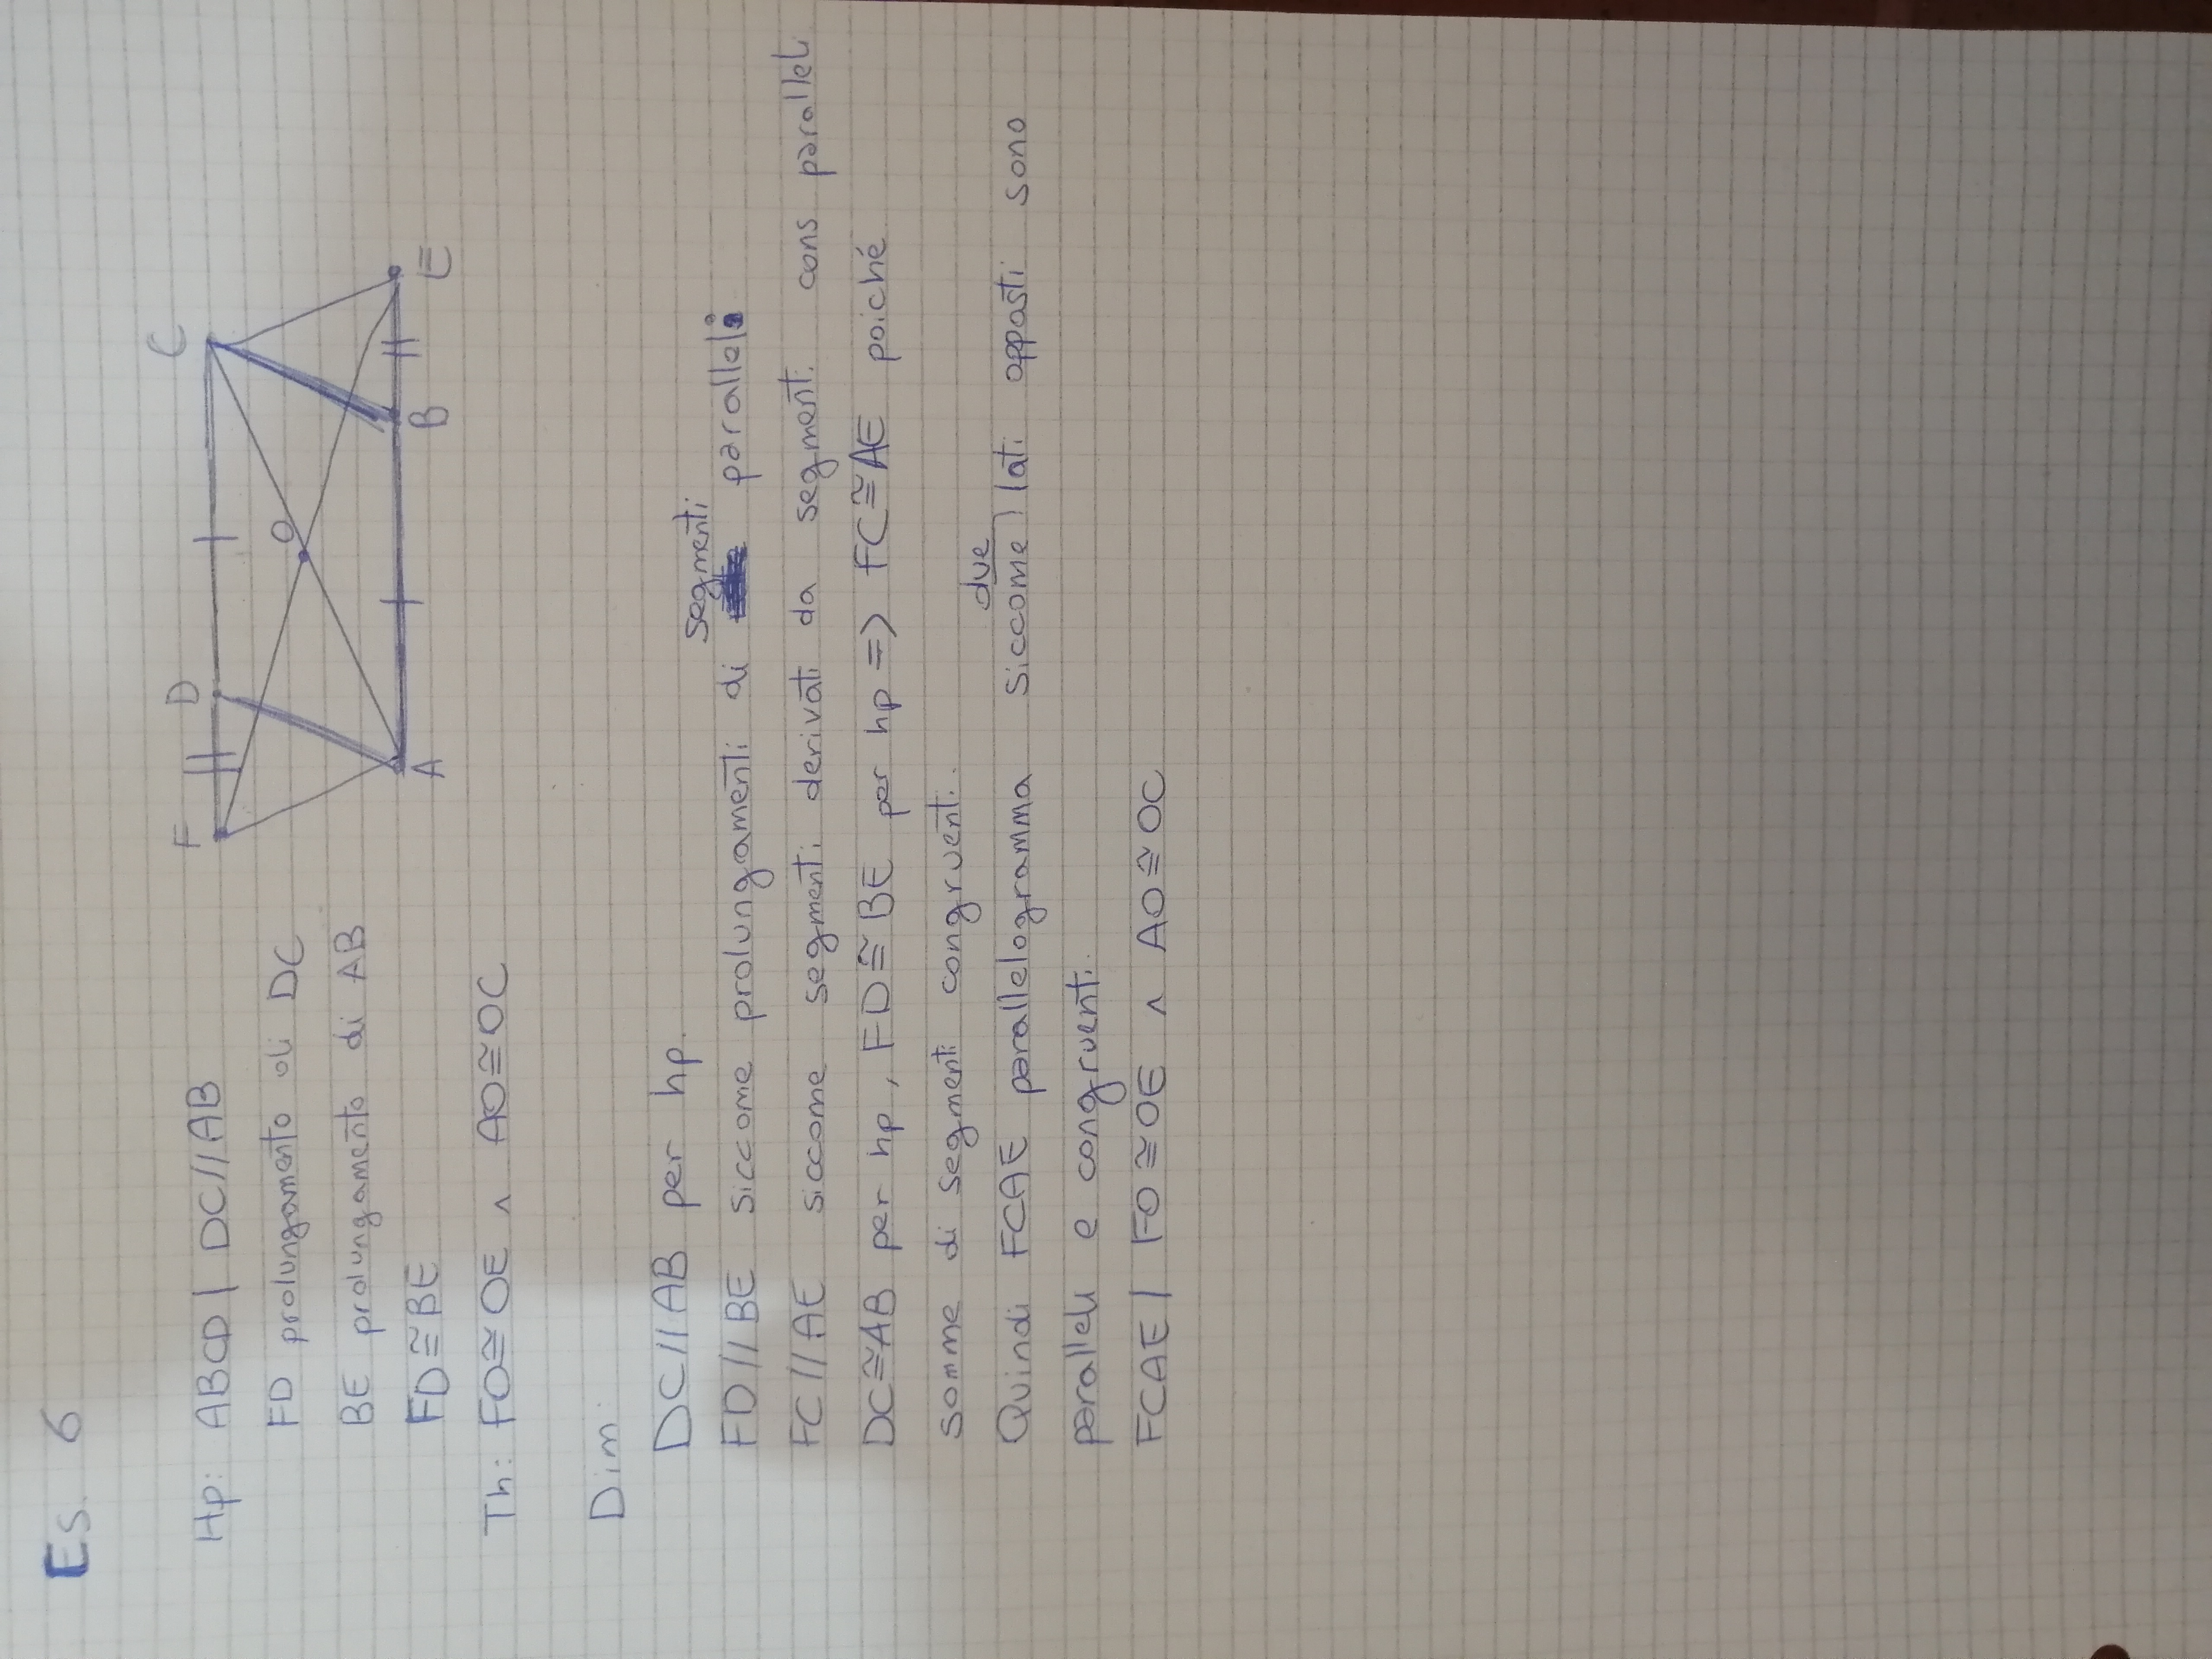 Es. 6
F D C
O
A B E
Hp: ABCD | DC//AB
FD prolungamento di DC
BE prolungamento di AB
FD≅BE
Th: FO≅OE ∧ AO≅OC
Dim.
DC//AB per hp.
segmenti
FD//BE siccome prolungamenti di paralleli
FC//AE siccome segmenti derivati da segmenti cons paralleli
DC≅AB per hp, FD≅BE per hp => FC≅AE poiché
somme di segmenti congruenti.
due
Quindi FCAE parallelogramma siccome lati opposti sono
paralleli e congruenti.
FCAE | FO≅OE ∧ AO≅OC